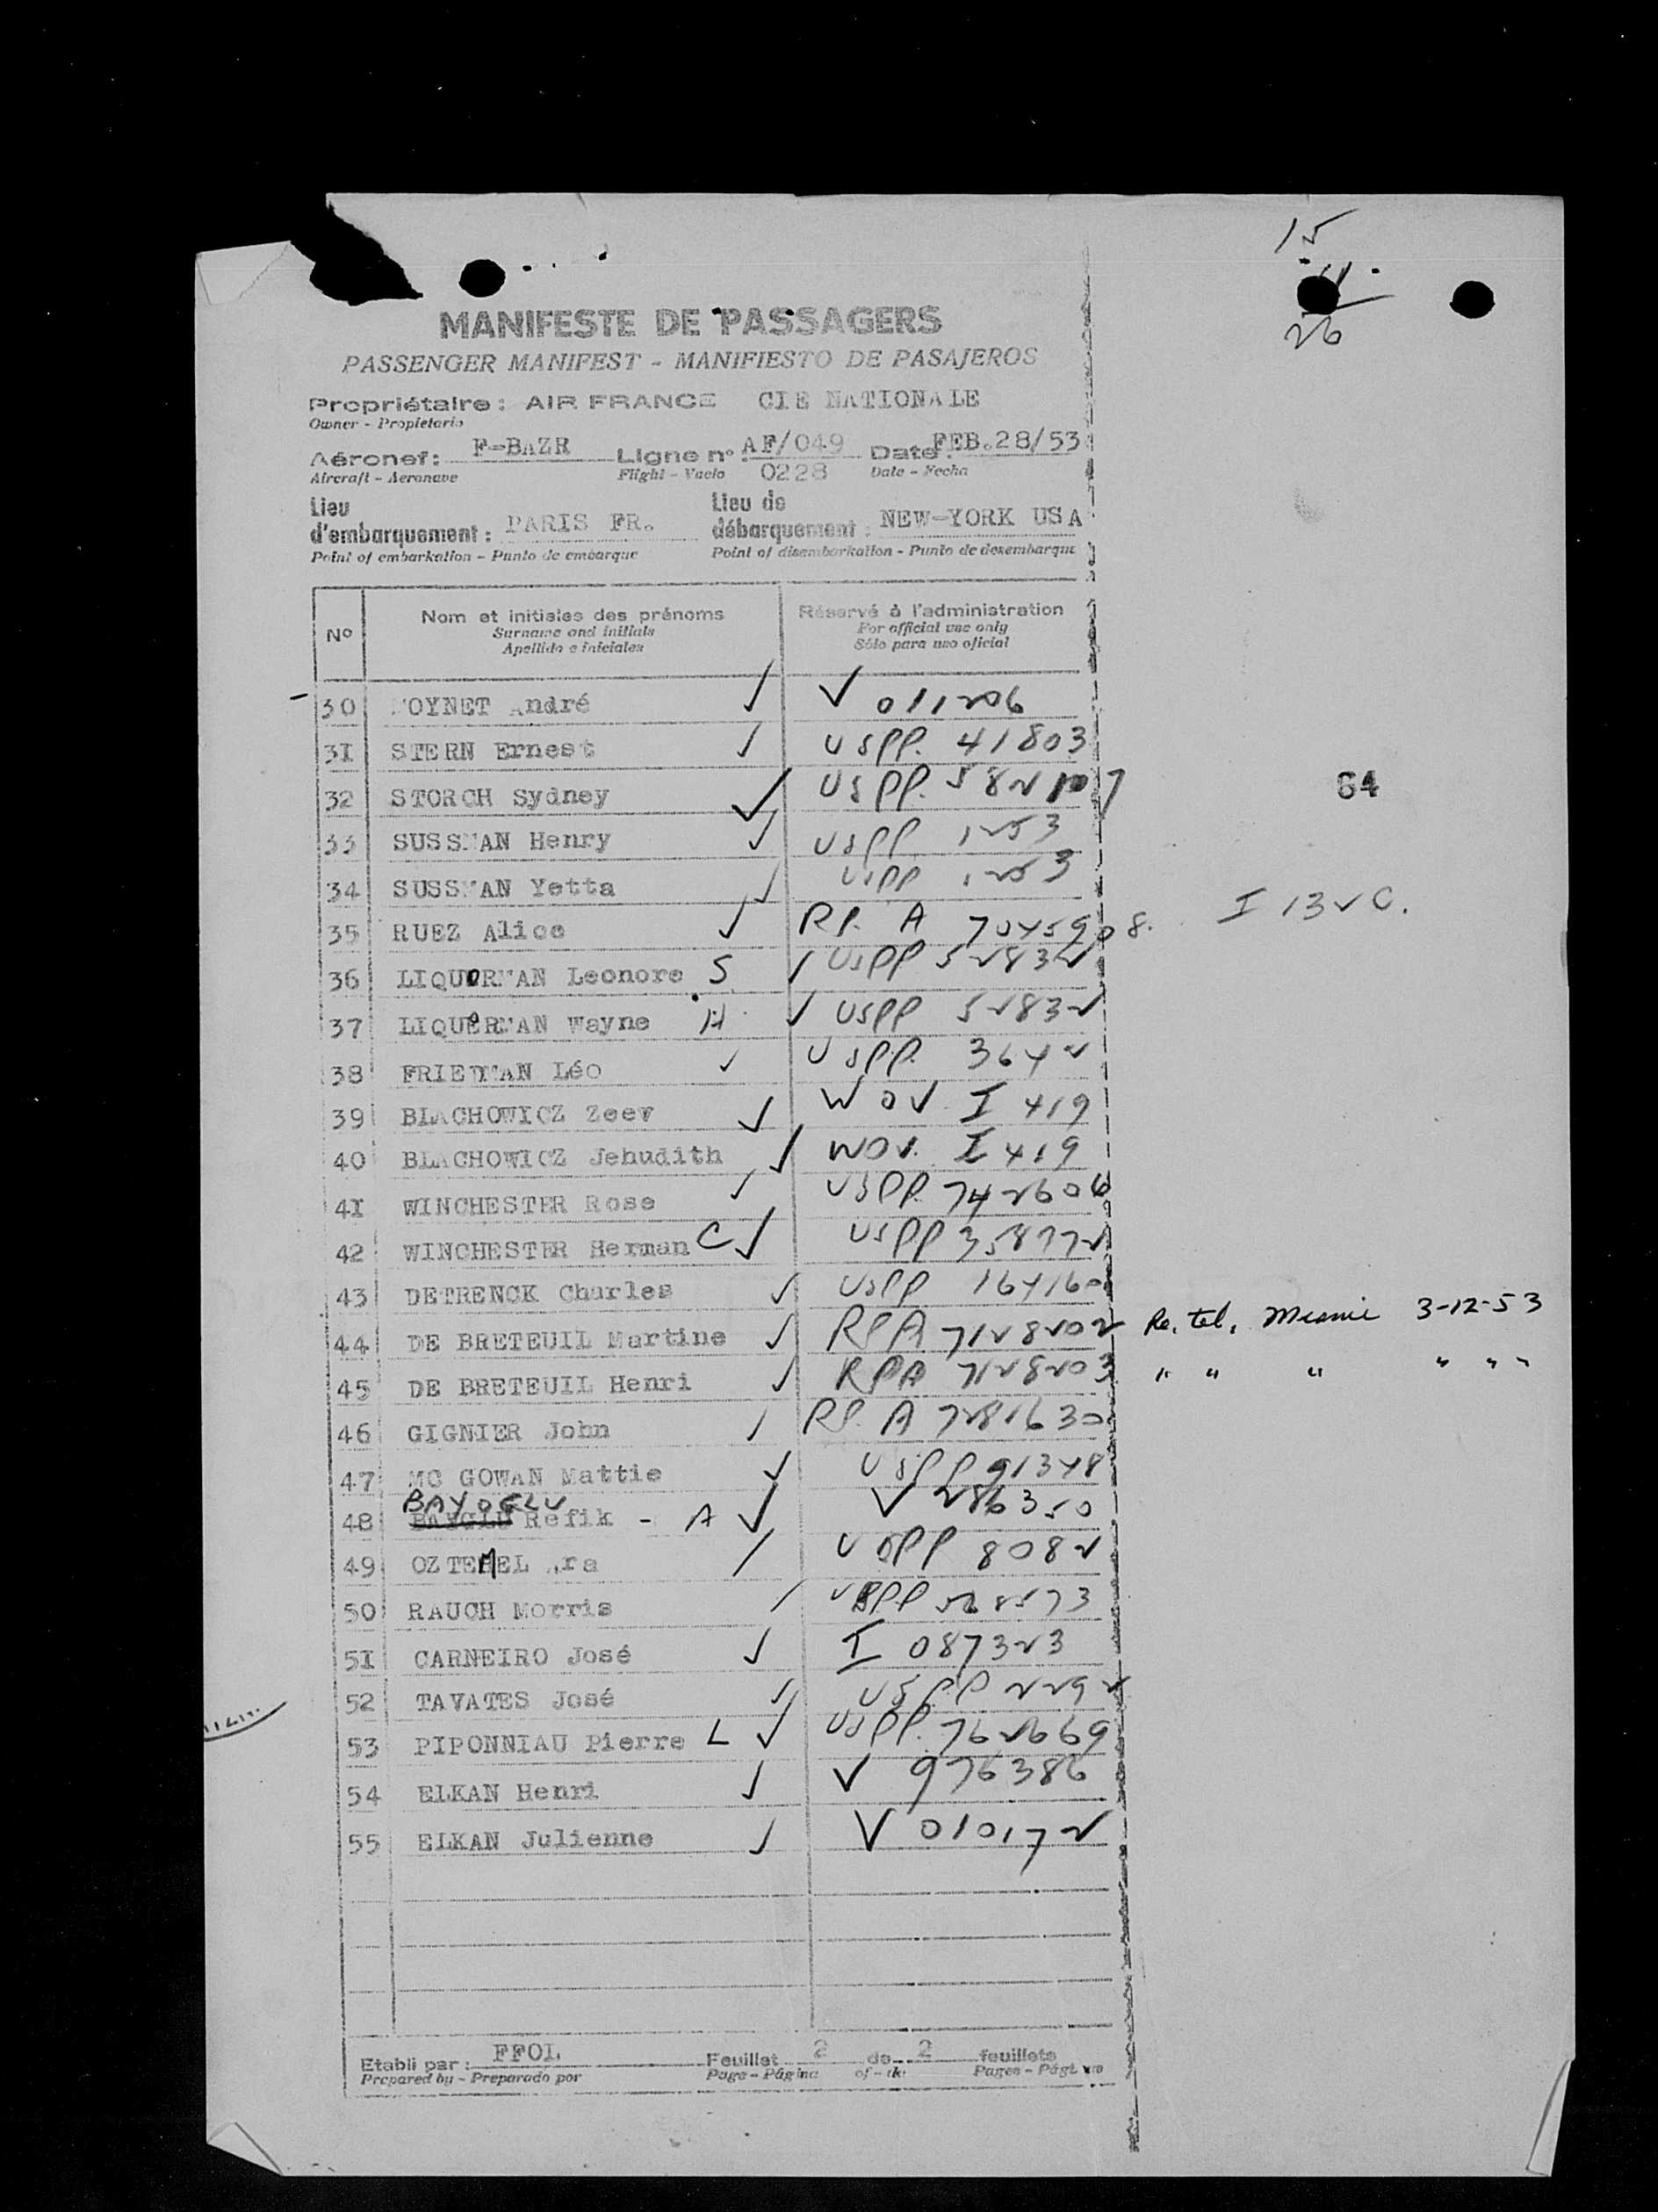 15
11
26
MANIFESTE DE PASSAGERS
PASSENGER MANIFEST - MANIFIESTO DE PASAJEROS
Propriétaire : AIR FRANCE CIE NATIONALE
Owner - Propietario
Aéronef : F-BAZR Ligne n° : AF/049 Date : FEB.28/53
Aircraft - Aeronave Flight - Vuelo 0228 Date - Fecha
Lieu d'embarquement : PARIS FR. Lieu de débarquement : NEW-YORK USA
Point of embarkation - Punto de embarque Point of disembarkation - Punto de desembarque
N° Nom et initiales des prénoms Réservé à l'administration
Surname and initials For official use only
Apellido e iniciales Sólo para uso oficial
30 OYNET André ✓ V 011206
31 STERN Ernest ✓ USPP. 41803
32 STORCH Sydney ✓ USPP. 582107
64
33 SUSSMAN Henry ✓ USPP 1253
34 SUSSMAN Yetta ✓ USPP 1253
35 RUEZ Alice ✓ RP. A 7045908. I 132 C.
36 LIQUORMAN Leonore S. ✓ USPP 52832
37 LIQUORMAN Wayne H. ✓ USPP 52832
38 FRIEDMAN Léo ✓ USPP. 3642
39 BLACHOWICZ Zeev ✓ WOV I 419
40 BLACHOWICZ Jehudith ✓ WOV. I 419
41 WINCHESTER Rose ✓ USPP. 742606
42 WINCHESTER Herman C ✓ USPP 358772
43 DETRENCK Charles ✓ USPP 164160
44 DE BRETEUIL Martine ✓ RPA 7128202 Re. tel. Miami 3-12-53
45 DE BRETEUIL Henri ✓ RPA 7128203 " " " " " "
46 GIGNIER John ✓ RP. A 7281630
47 MC GOWAN Mattie ✓ USPP 91348
48 BAYOGLU Refik - A ✓ V 286350
49 OZTEMEL Ara ✓ USPP 8082
50 RAUCH Morris ✓ USPP 528573
51 CARNEIRO José ✓ I 087323
52 TAVATES José ✓ USPP 2292
53 PIPONNIAU Pierre L ✓ USPP. 762669
54 ELKAN Henri ✓ V 976386
55 ELKAN Julienne ✓ V 010172
Etabli par : FFOL Feuillet 2 de 2 feuillets
Prepared by - Preparado por Page - Página of - de Pages - Páginas